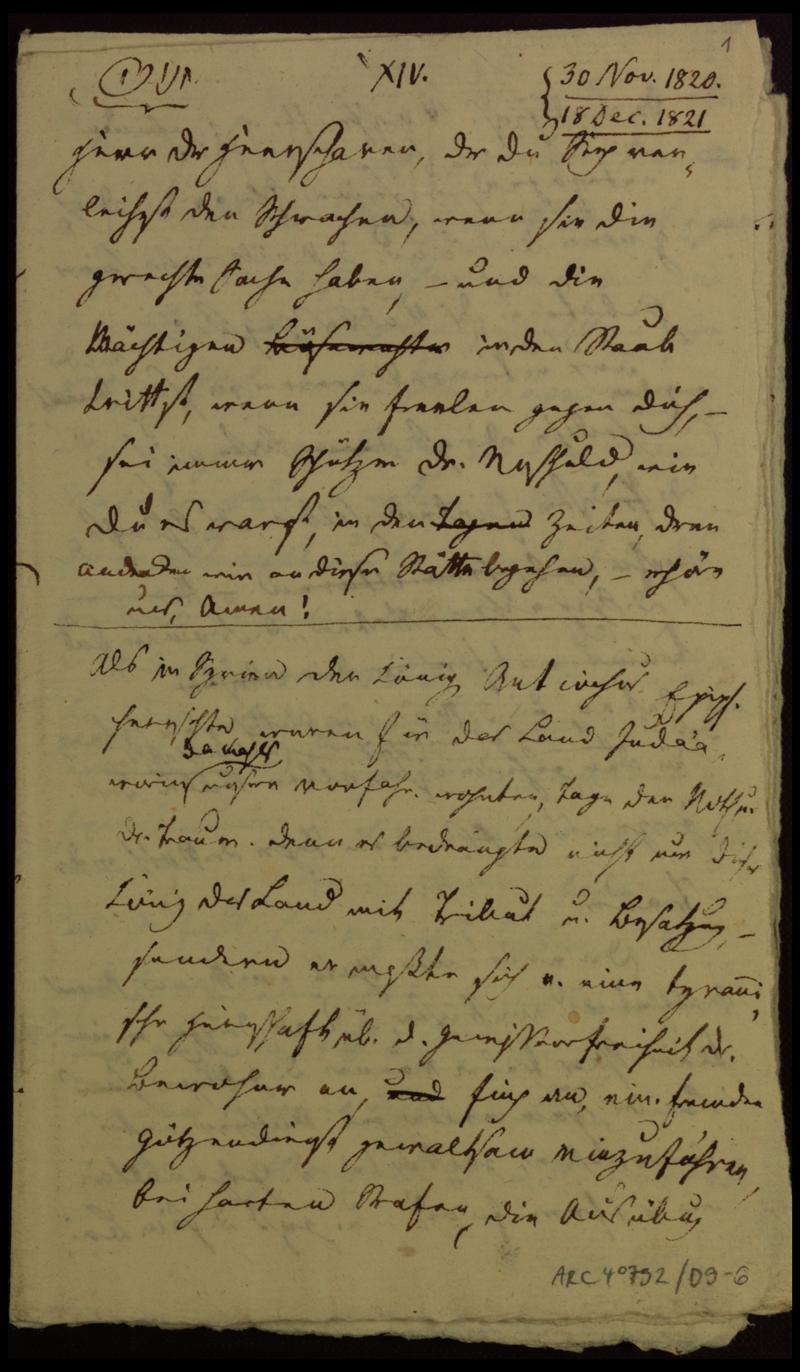 1
XIV.
30 Nov. 1820.
18 Dec. 1821
Herr der Heerscharen, der du Sieg ver-
leihest den Schwachen, wenn sie die
gerechte Sache haben, – und die
Mächtigen Bösewichter in den Staub
trittst, wenn sie freveln gegen dich, –
sei immer Schützer der Unschuld, wie
du es warst, in den Tagen Zeiten, deren
Andenken wir an dieser Stätte begehen, – erhöre
uns, Amen!
Als in Syrien der König Antiochus Epiph.
herrschte, waren für das Land Judäa,
damals
worin unsere Vorfahr. wohnten, Tage der Noth u.
der Trauer. Denn es bedrängte nicht nur dieser
König das Land mit Tribut u. Besatzung, –
sondern er maßte sich a. eine tyranni-
sche Herrschaft üb. d. Gewissensfreiheit der
Bewohner an, und fing an, ein. fremden
Götzendienst gewaltsam einzuführen,
bei harten Strafen, die Ausübung
ARC 4°792/D9-6